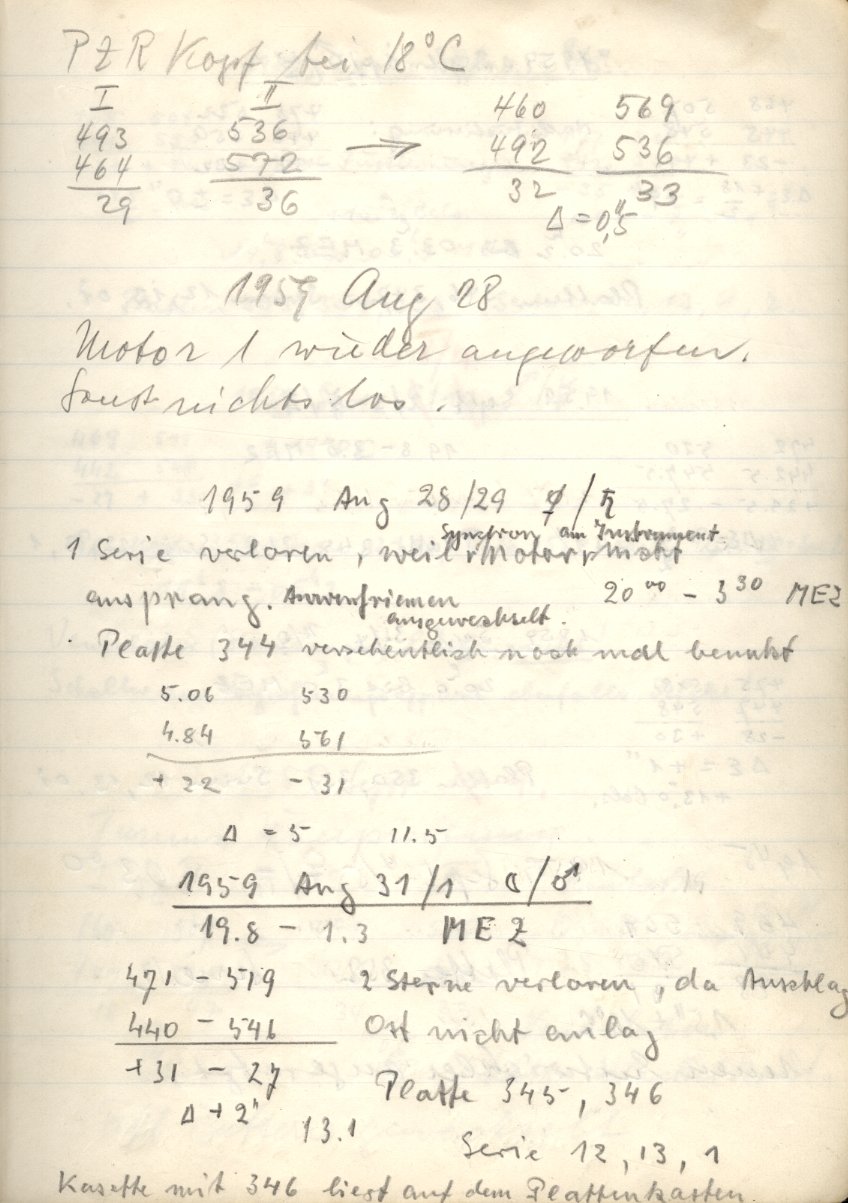 PZR Kopf bei 18°C
I II
493 536 → 460 569
464 572 492 536
29 36 32 33
Δ = 0,"5
1959 Aug 28
Motor 1 wieder angeworfen.
Sonst nichts los.
1959 Aug 28/29 ♀/♄
Synchron am Instrument
1 Serie verloren, weil Motor nicht
ansprang. 20⁰⁰ - 3³⁰ MEZ
ausgewechselt.
Platte 344 versehentlich noch mal benutzt
5.06 530
4.84 561
+ 22 - 31
Δ = 5 11.5
1959 Aug 31/1 ☾/♂
19.8 - 1.3 MEZ
471 - 519 2 Sterne verloren, da Anschlag
440 - 546 Ost nicht anlag
+31 - 27 Platte 345, 346
Δ + 2" 13.1
Serie 12, 13, 1
Kasette mit 346 liegt auf dem Plattenkasten.